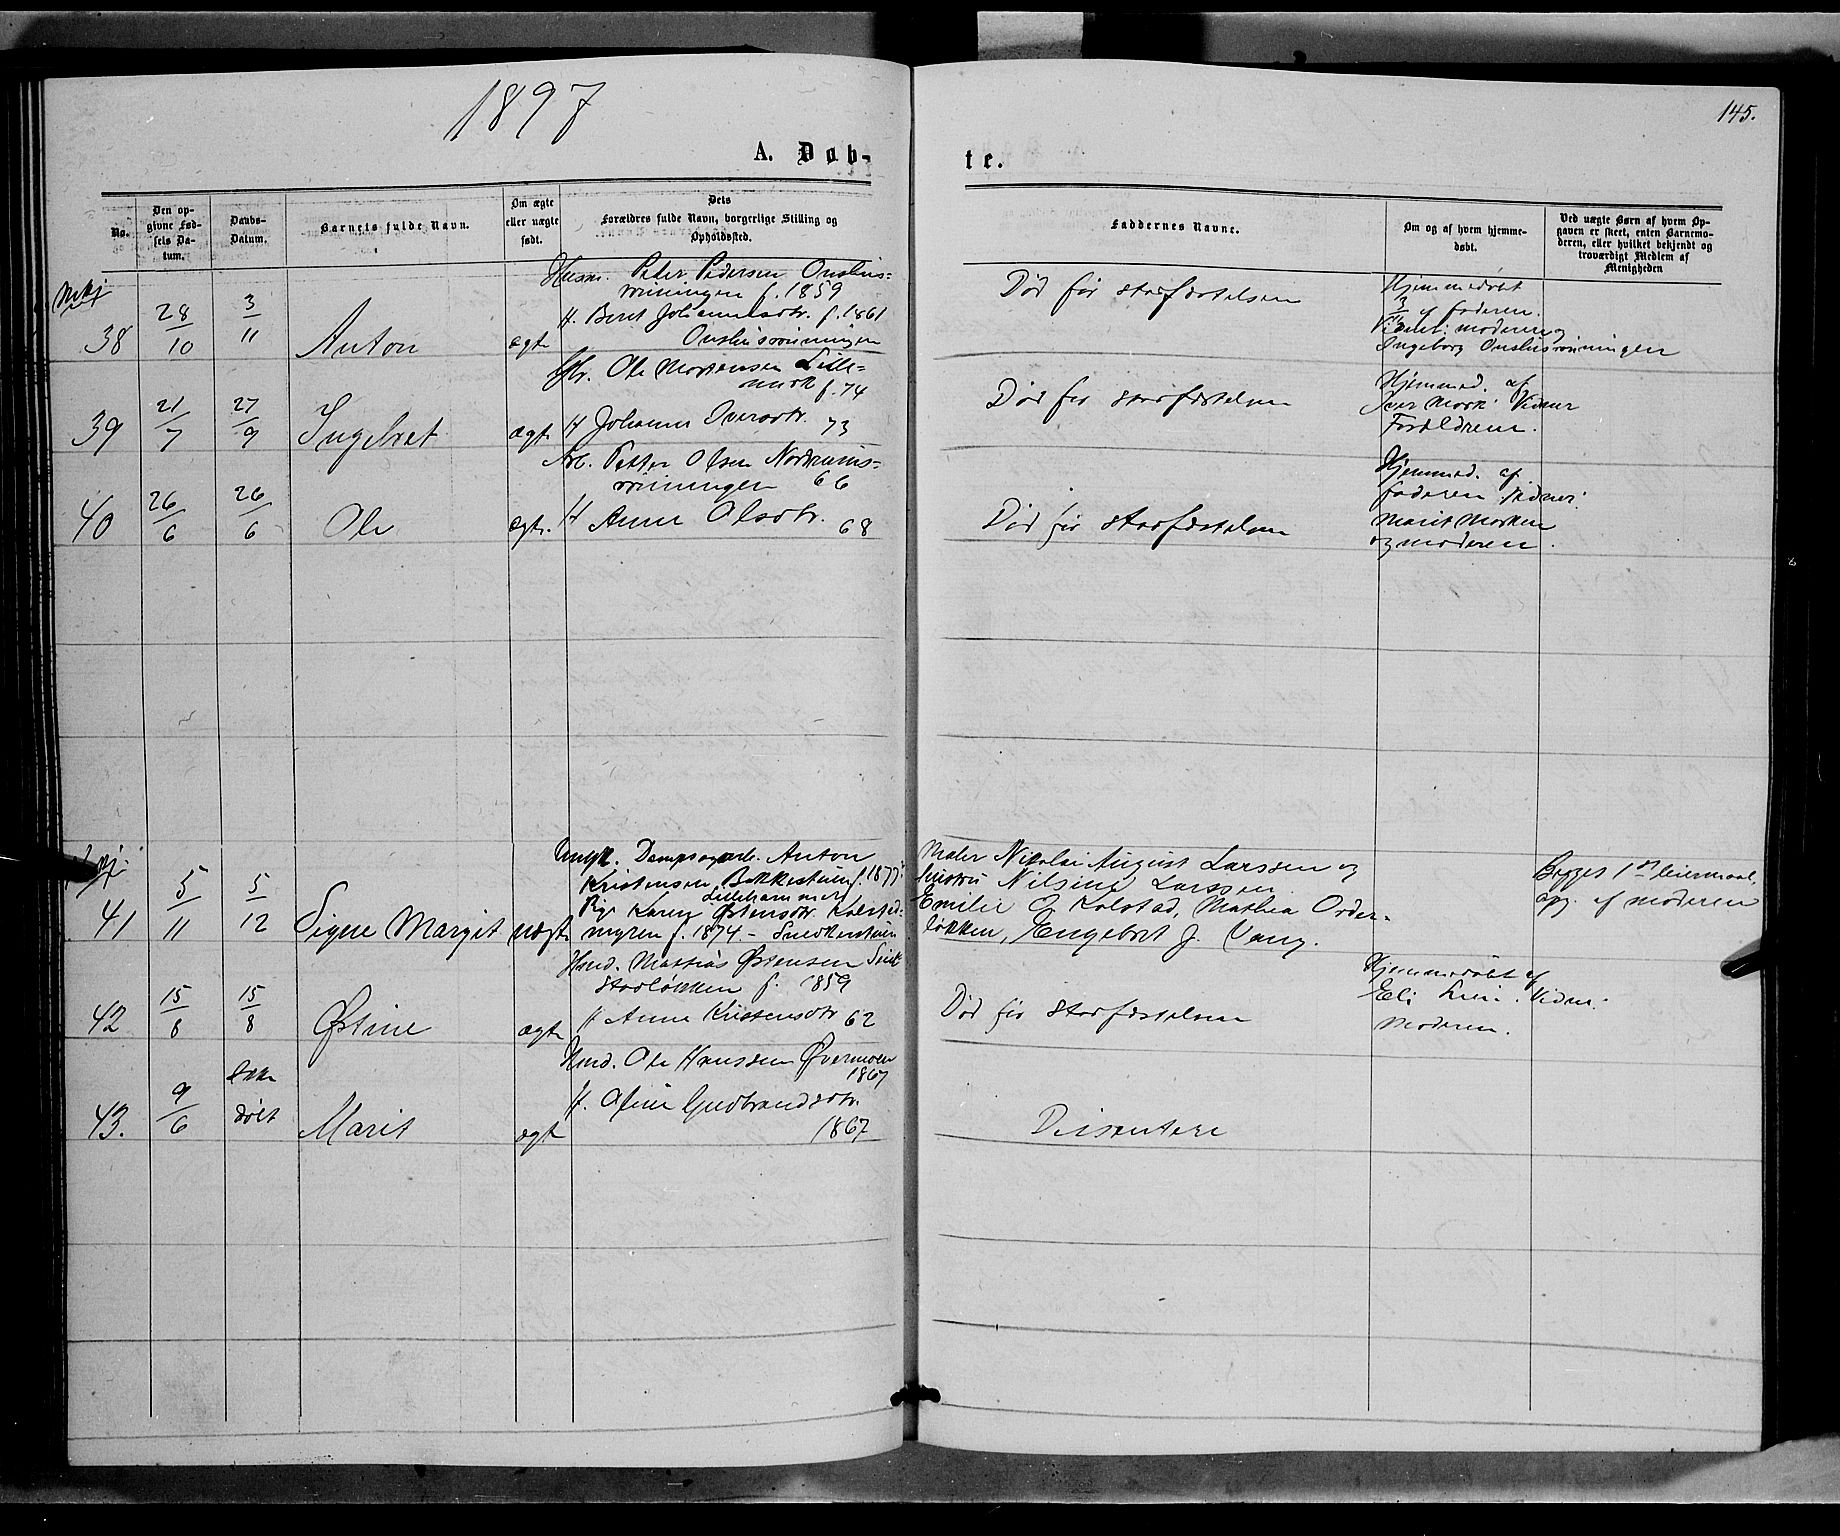 1897
145.
A. Døb-
te.
No.
Den op-
givne Fød-
sels Da-
tum.
Daabs-
Datum.
Barnets fulde Navn.
Om ægte
eller uægte
født.
Dets
Forældres fulde Navn, borgerlige Stilling og
Opholdssted.
Faddernes Navne.
Om og af hvem hjemme-
døbt.
Ved uægte Børn af hvem Op-
gaven er skeet, enten Barnemo-
deren, eller hvilket bekjendt og
troværdigt Medlem af
Menigheden
38
28/10
3/11
Anton
ægte
Husm. Peter Pedersen Onshus-
rønningen f. 1859
H. Berit Johannesdtr. f. 1861
Onshusrønningen
Død før stadfæstelsen
Hjemmedøbt
3/11 af faderen.
Vidner: moderen og
Ingeborg Onshusrønningen
39
21/7
27/9
Ingebret
ægte
Ole Mortensen Lille-
mork f. 74
H Johanne Iversdtr. 73
Død før stadfæstelsen
Hjemmed. af
Iver Mork. Vidner
Forældrene.
40
26/6
26/6
Ole
ægte.
Arb. Petter Olsen Nordrums-
rønningen 66
H Anne Olsdtr. 68
Død før stadfæstelsen
Hjemmed. af
faderen. Vidner:
Marit Morken
og moderen.
41
5/11
5/12
Signe Margit
uægte
Ungk. Dampsagarb. Anton
Kristensen Bakkestuen f. 1877
Lillehammer
Pige Karen Østensdtr. Kolstad-
myren f. 1874 – Snedkerstuen
Maler Nikolai August Larssen og
hustru Nilsine Larssen.
Emilie O. Kolstad, Mathea Order-
løkken, Engebret J. Vang.
Begges 1ste leiermaal,
opg. af moderen
42
15/8
15/8
Østine
ægte
Hmd. Mathias Østensen
Stadløkken f. 1859
H Anne Kristensdtr 62
Død før stadfæstelsen
Hjemmedøbt af
Eli Lien. Vidne:
Moderen.
43.
9/6
Ikke
døbt
Marit
ægte
Hmd. Ole Hanssen Øvermoen
1867
H. Oline Gudbrandsdtr.
1867
Dissentere